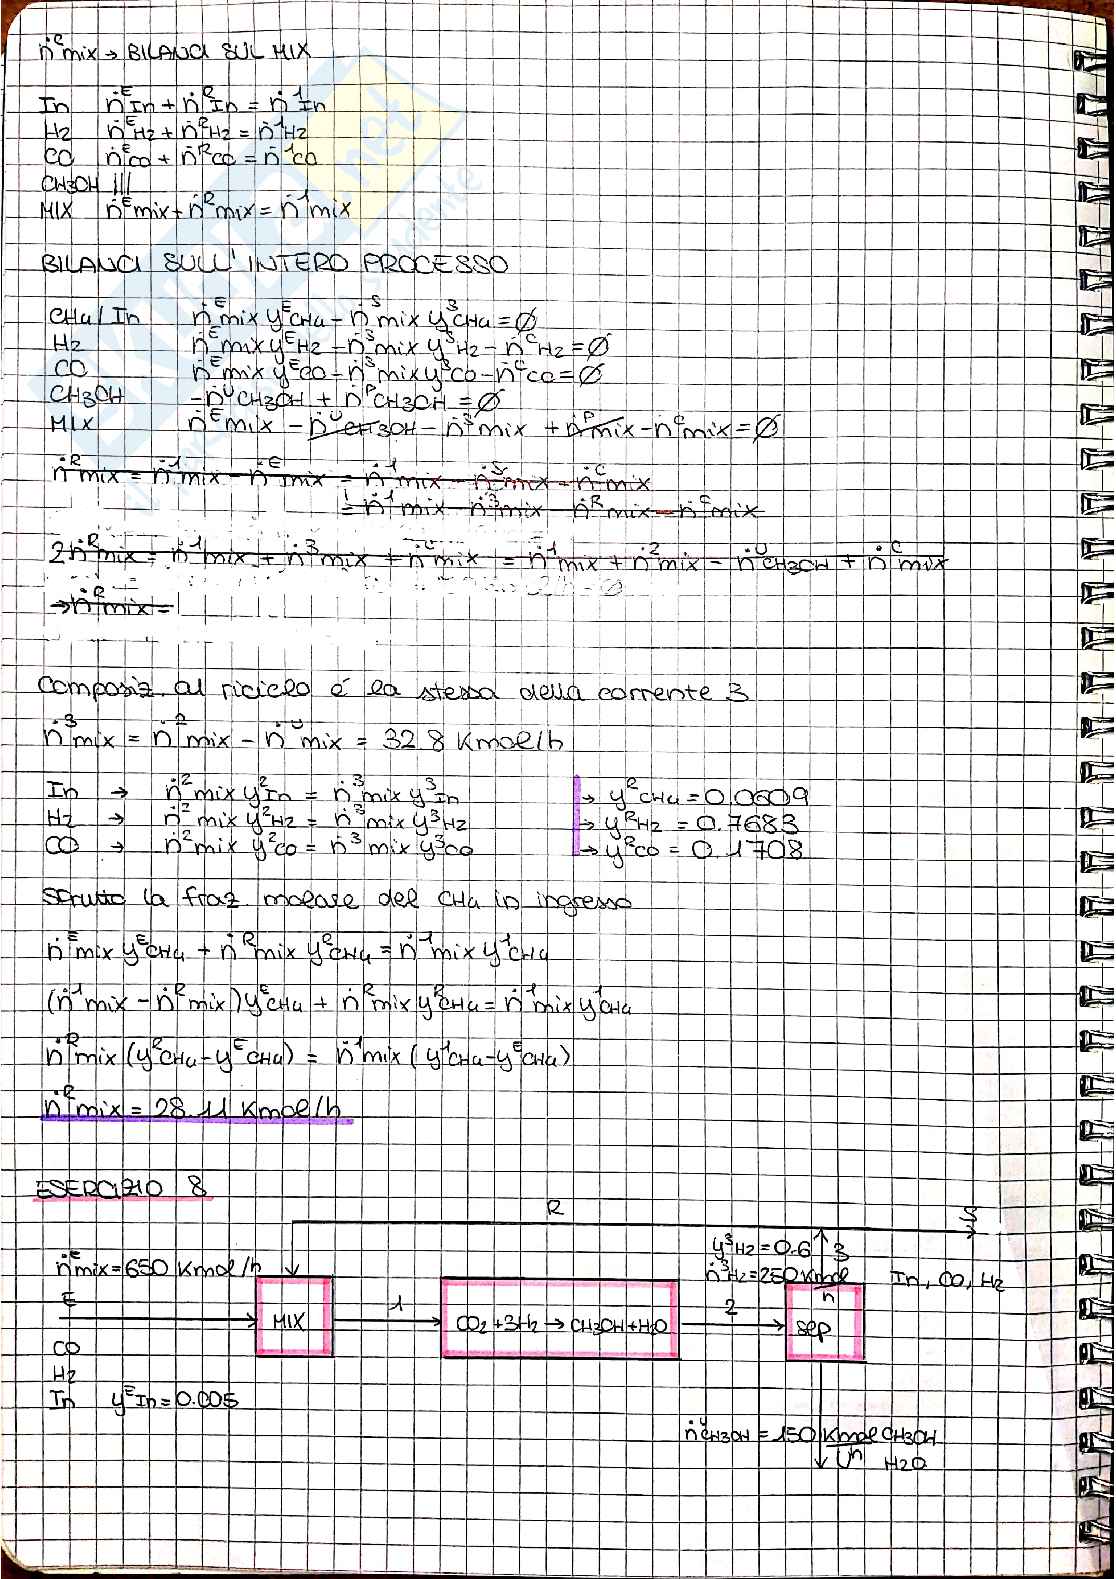 ṅᶜmix → BILANCI SUL MIX
In ṅᴱIn + ṅᴿIn = ṅ¹In
H2 ṅᴱH2 + ṅᴿH2 = ṅ¹H2
CO ṅᴱCO + ṅᴿCO = ṅ¹CO
CH3OH |||
MIX ṅᴱmix + ṅᴿmix = ṅ¹mix
BILANCI SULL'INTERO PROCESSO
CH4/In ṅᴱmix yᴱCH4 - ṅˢmix yˢCH4 = Ø
H2 ṅᴱmix yᴱH2 - ṅˢmix yˢH2 - ṅᶜH2 = Ø
CO ṅᴱmix yᴱCO - ṅˢmix yˢCO - ṅᶜCO = Ø
CH3OH -ṅᵁCH3OH + ṅᴾCH3OH = Ø
MIX ṅᴱmix - ṅᵁCH3OH - ṅˢmix + ṅᴾmix - ṅᶜmix = Ø
ṅᴿmix = ṅ¹mix - ṅᴱmix = ṅ¹mix - ṅˢmix - ṅᶜmix
= ṅ¹mix - ṅ³mix - ṅᴿmix - ṅᶜmix
2ṅᴿmix = ṅ¹mix + ṅ³mix + ṅᶜmix = ṅ¹mix + ṅ²mix - ṅᵁCH3OH + ṅᶜmix
→ ṅᴿmix =
Composiz al riciclo é la stessa della corrente 3
ṅ³mix = ṅ²mix - ṅᵁmix = 32.8 Kmol/h
In → ṅ²mix y²In = ṅ³mix y³In → yᴿCH4 = 0.0609
H2 → ṅ²mix y²H2 = ṅ³mix y³H2 → yᴿH2 = 0.7683
CO → ṅ²mix y²CO = ṅ³mix y³CO → yᴿCO = 0.1708
Sfrutto la fraz molare del CH4 in ingresso
ṅᴱmix yᴱCH4 + ṅᴿmix yᴿCH4 = ṅ¹mix y¹CH4
(ṅ¹mix - ṅᴿmix) yᴱCH4 + ṅᴿmix yᴿCH4 = ṅ¹mix y¹CH4
ṅᴿmix (yᴿCH4 - yᴱCH4) = ṅ¹mix (y¹CH4 - yᴱCH4)
ṅᴿmix = 28.11 Kmol/h
ESERCIZIO 8
R S
y³H2 = 0.6 3
ṅᴱmix = 650 Kmol/h ṅ³H2 = 250 Kmol/h In, CO, H2
E 1 2
MIX CO2 + 3H2 → CH3OH + H2O sep
CO
H2
In yᴱIn = 0.005
ṅᵁCH3OH = 150 Kmol/h CH3OH
U H2O